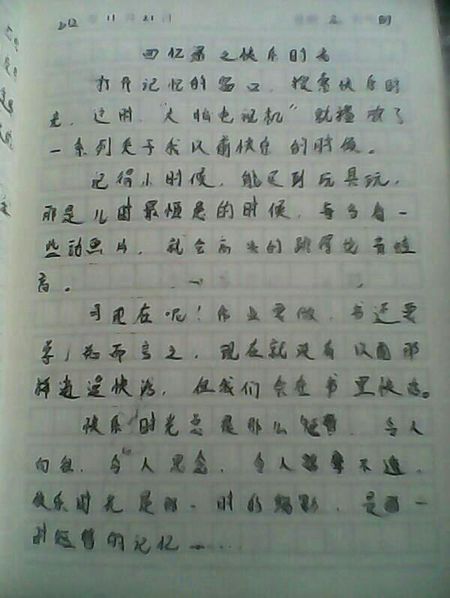 11月21日
回忆最之快乐时光
打开记忆的窗口，搜索快乐时
光，这时，“大脑电视机”就播放了
一系列关于我以前快乐的时候。
记得小时候，能见到玩具玩，
那是儿时最惬意的时候，每当看一
些动画片，就会高兴的跳得比青蛙
高。
可现在呢！作业要做，书还要
学，总而言之，现在就没有以前那
样逍遥快活，但我们会在书里快乐。
快乐时光总是那么短暂，令人
向往，令人思念，令人不
快乐时光是 时的 是
时短暂的记忆……